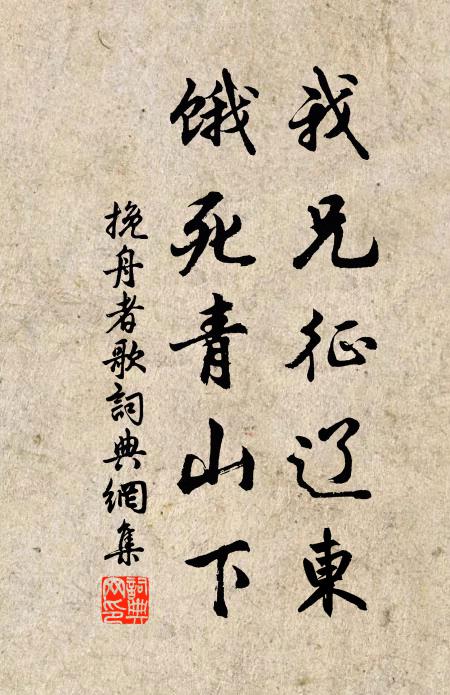 我兄征辽東
餓死青山下
挽舟者歌詞典網集
詞典网印